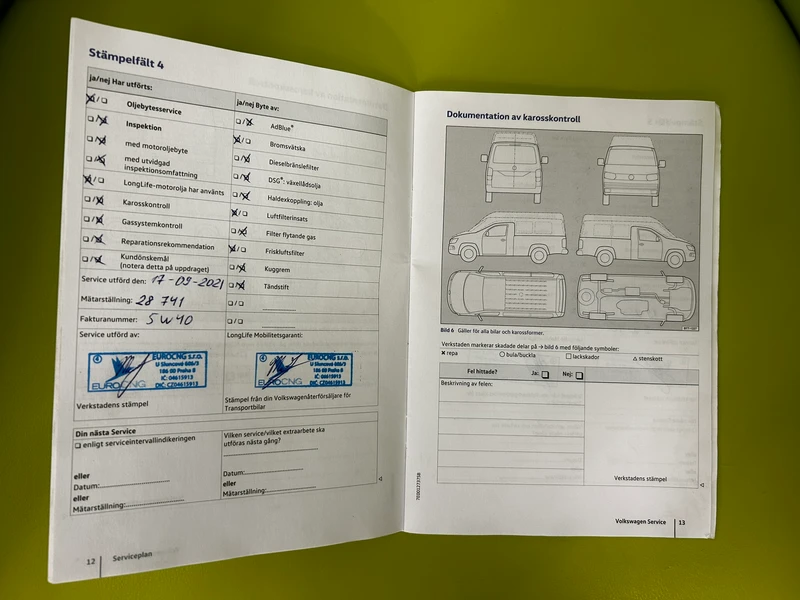 Stämpelfält 4
ja/nej Har utförts:
☒/☐ Oljebytesservice
☐/☒ Inspektion
☐/☒ med motoroljebyte
☐/☒ med utvidgad
inspektionsomfattning
☒/☐ LongLife-motorolja har använts
☐/☒ Karosskontroll
☐/☒ Gassystemkontroll
☐/☒ Reparationsrekommendation
☐/☒ Kundönskemål
(notera detta på uppdraget)
ja/nej Byte av:
☐/☒ AdBlue®
☒/☐ Bromsvätska
☐/☒ Dieselbränslefilter
☐/☒ DSG®: växellådsolja
☐/☒ Haldexkoppling: olja
☒/☐ Luftfilterinsats
☐/☒ Filter flytande gas
☒/☐ Friskluftsfilter
☐/☒ Kuggrem
☐/☒ Tändstift
☐/☐
☐/☐
Service utförd den: 17-09-2021
Mätarställning: 28 741
Fakturanummer: 5W40
Service utförd av:
LongLife Mobilitetsgaranti:
4 EUROCNG s.r.o.
U Sluncové 606/3
186 00 Praha 8
IČ: 04615913
DIČ: CZ04615913
EUROCNG
Verkstadens stämpel
4 EUROCNG s.r.o.
U Sluncové 606/3
186 00 Praha 8
IČ: 04615913
DIČ: CZ04615913
EUROCNG
Stämpel från din Volkswagenåterförsäljare för
Transportbilar
Din nästa Service
☐ enligt serviceintervallindikeringen
eller
Datum:
eller
Mätarställning:
Vilken service/vilket extraarbete ska
utföras nästa gång?
Datum:
eller
Mätarställning:
12 Serviceplan
Dokumentation av karosskontroll
Bild 6 Gäller för alla bilar och karossformer.
Verkstaden markerar skadade delar på → bild 6 med följande symboler:
✖ repa ○ bula/buckla ☐ lackskador △ stenskott
Fel hittade? Ja: ☐ Nej: ☐
Beskrivning av felen:
Verkstadens stämpel
Volkswagen Service 13